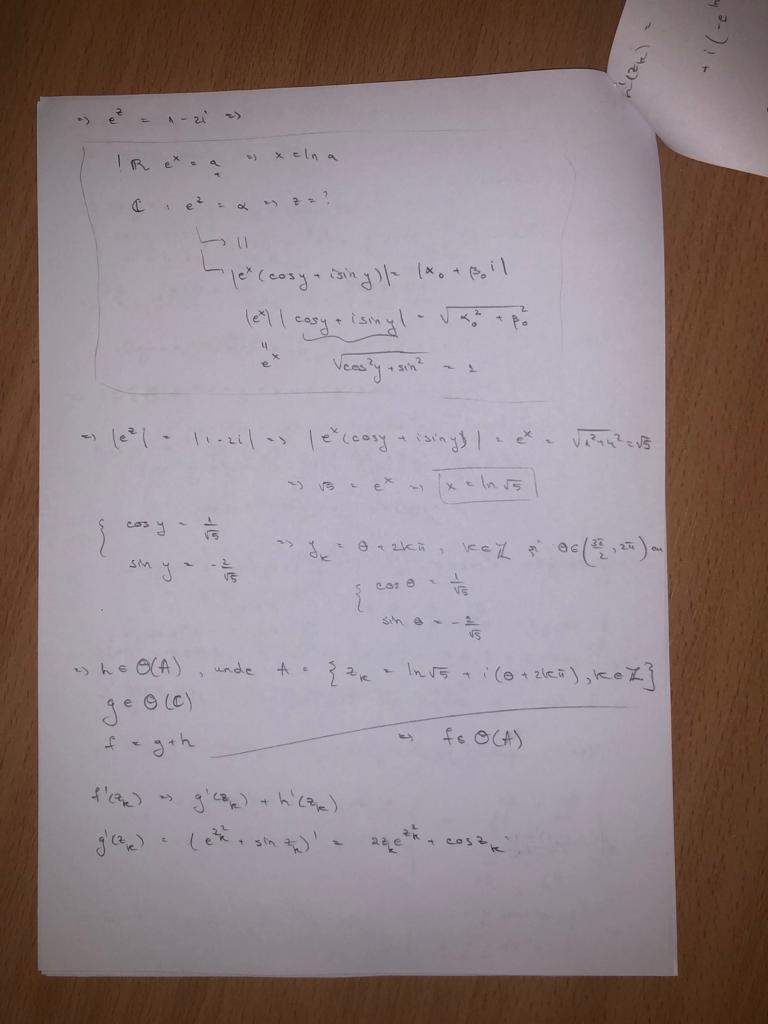 h'(z_k) =
+ i(-e
=> e^z = 1-2i =>
! ℝ e^x = a => x = ln a
+
ℂ : e^z = α => z = ?
↳ ||
↳ |e^x(cosy + isiny)| = |α_0 + β_0 i|
|e^x| |cosy + isiny| = √(α_0^2 + β_0^2)
||
e^x √(cos^2y + sin^2) = 1
=> |e^z| = |1-2i| => |e^x(cosy + isiny)| = e^x = √(1^2+4^2) = √5
=> √5 = e^x => x = ln√5
{ cos y = 1/√5
sin y = -2/√5
=> y_k = θ + 2kπ, k∈ℤ și θ∈(3π/2, 2π) cu
{ cos θ = 1/√5
sin θ = -2/√5
=> h ∈ Θ(A), unde A = { z_k = ln√5 + i(θ + 2kπ), k∈ℤ}
g ∈ Θ(ℂ)
f = g+h => f ∈ Θ(A)
f'(z_k) => g'(z_k) + h'(z_k)
g'(z_k) = (e^{z_k^2} + sin z_k)' = 2z_k e^{z_k^2} + cosz_k